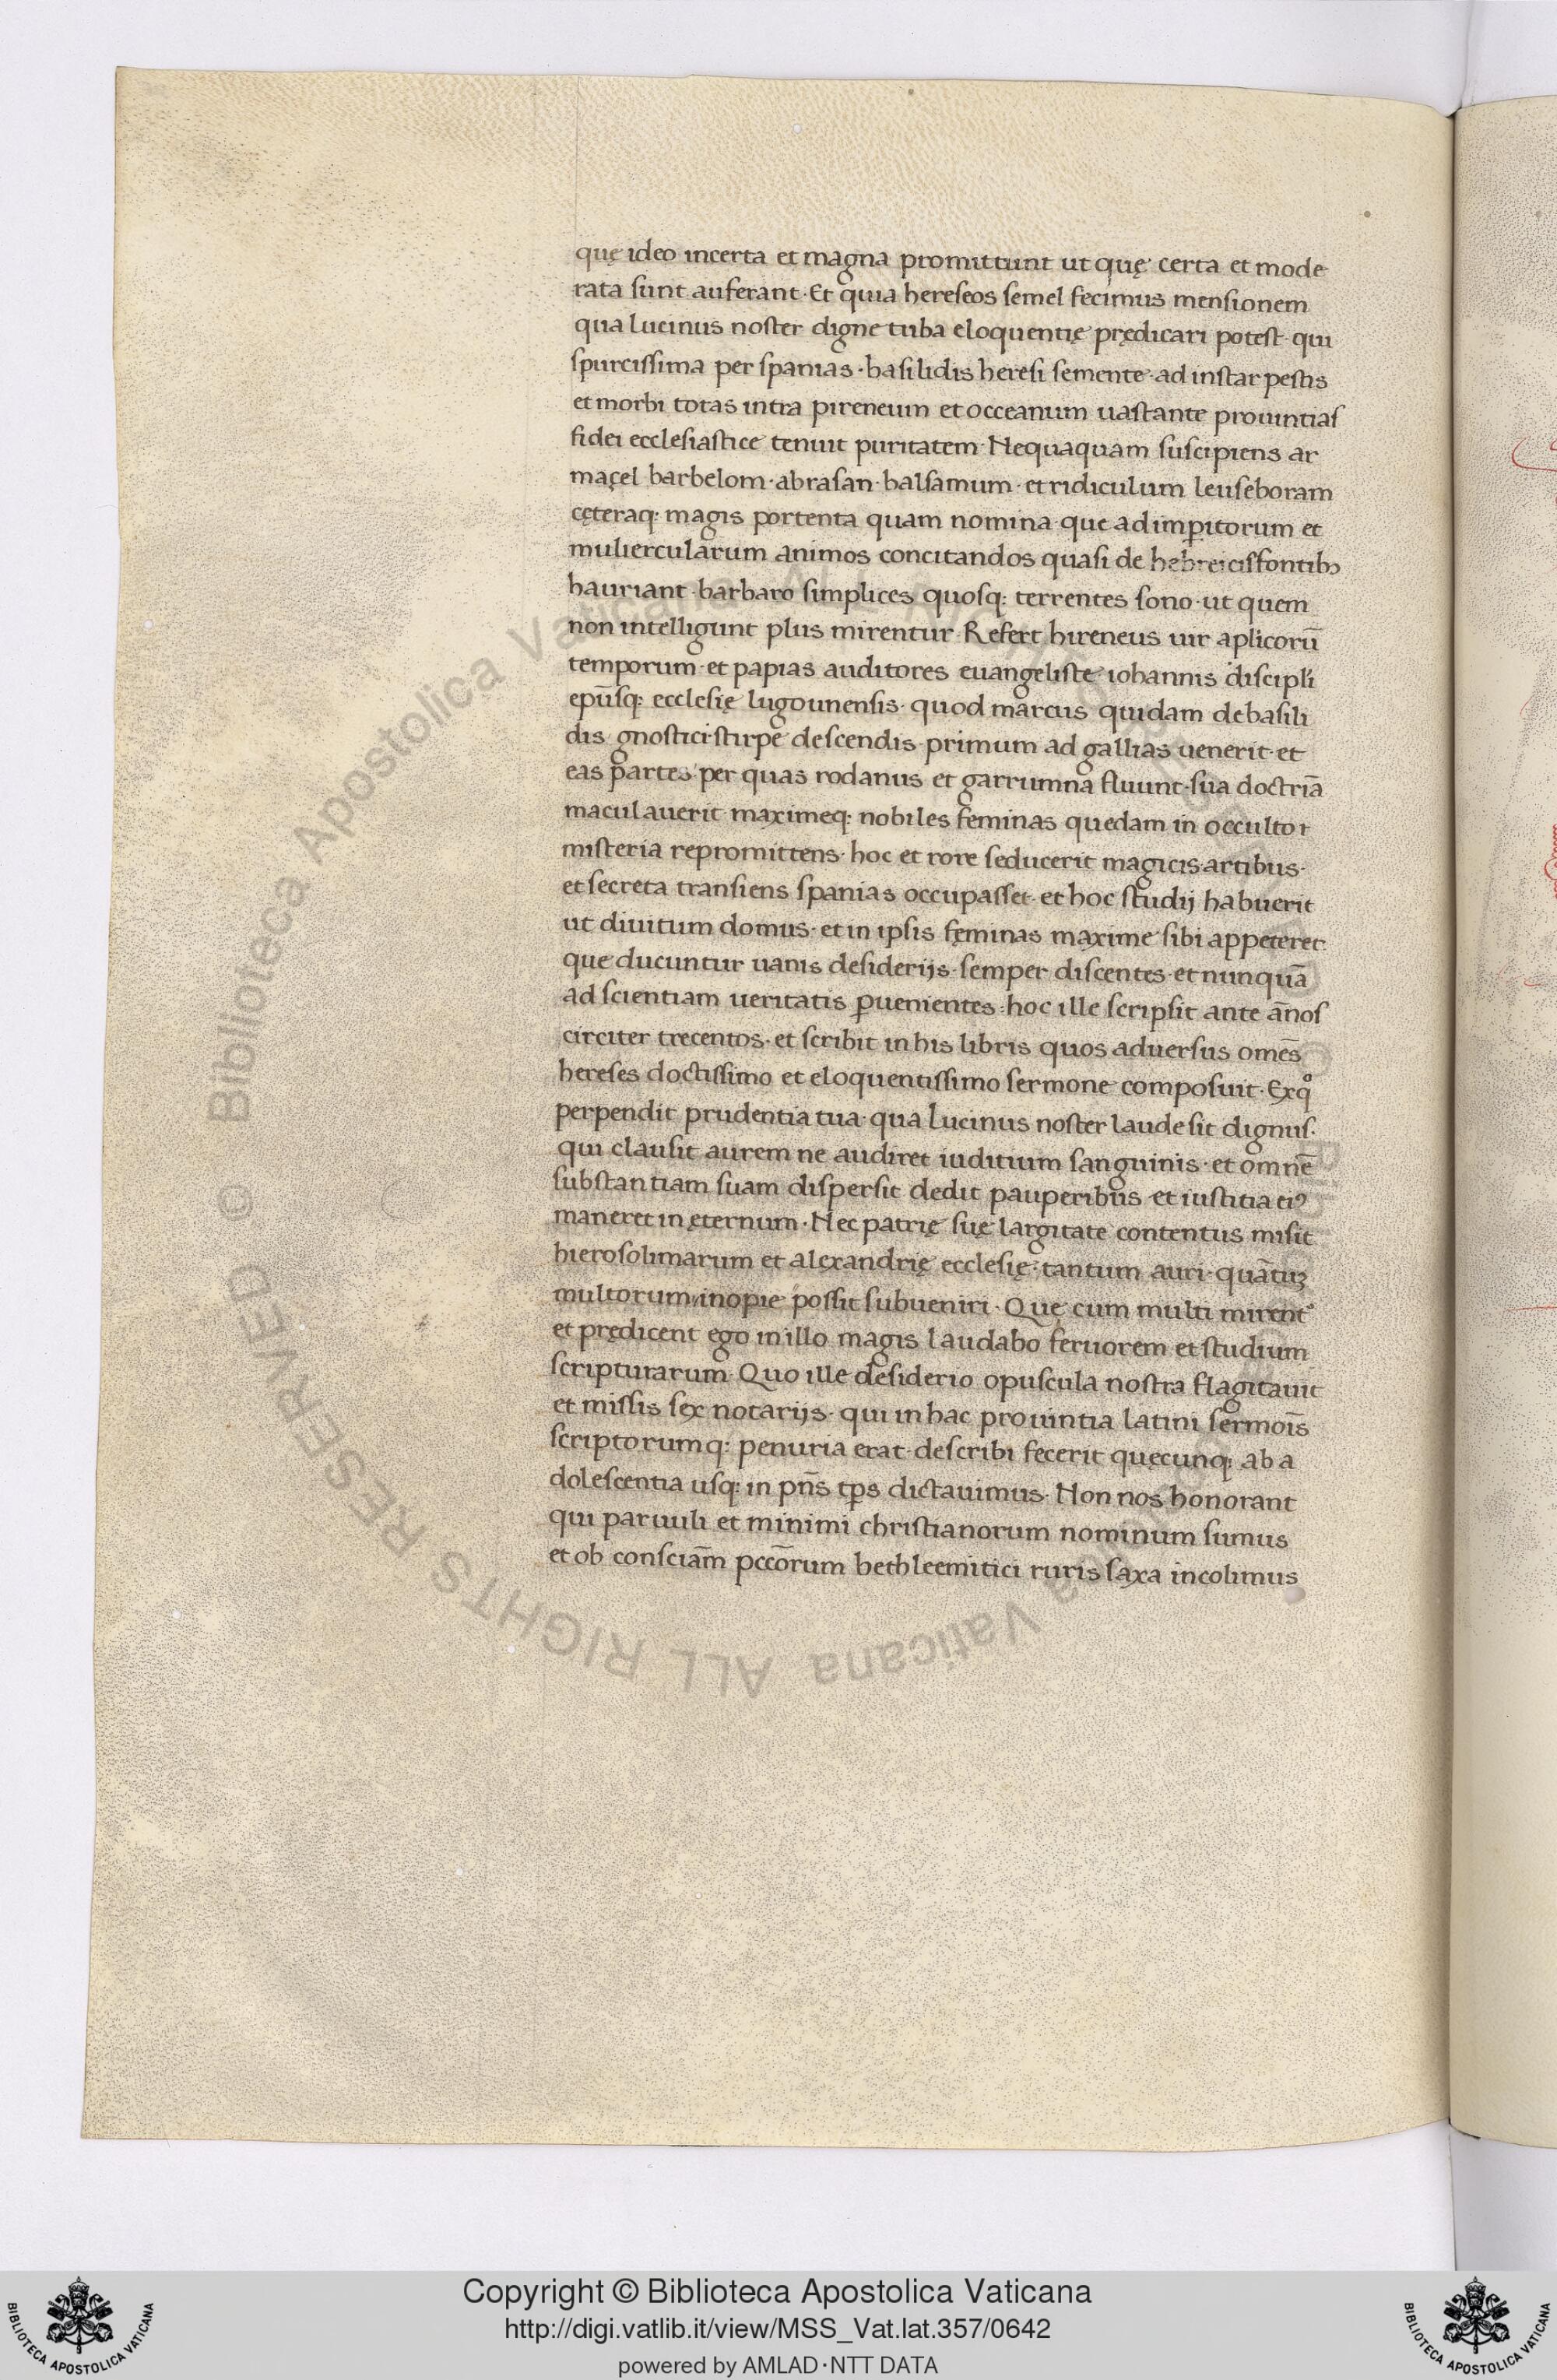 quę ideo incerta et magna promittunt ut quę certa et mode
rata sunt auferant · Et quia hereseos semel fecimus mensionem
qua lucinus noster digne tuba eloquentię prędicari potest · qui
spurcissima per spanias · basilidis heresi semente · ad instar pestis
et morbi totas intra pireneum et occeanum uastante prouintias
fidei ecclesiastice tenuit puritatem · Nequaquam suscipiens ar
maçel barbelom · abrasan · balsamum · et ridiculum leuseboram
cęteraq: magis portenta quam nomina · que ad imꝑitorum et
muliercularum animos concitandos quasi de hebreicis fontibꝫ
hauriant · barbaro simplices quosq: terrentes sono · ut quem
non intelligunt plus mirentur · Refert hireneus uir aplicorū
temporum · et papias auditores euangeliste iohannis discipli
epūsq: ecclesię lugounensis · quod marcus quidam de basili
dis gnostici stirpe descendis · primum ad gallias uenerit · et
eas partes per quas rodanus et garrumna fluunt · sua doctriā
maculauerit maximeq: nobiles feminas quedam in occulto r
misteria repromittens · hoc et rore seducerit magicis artibus ·
et secreta transiens spanias occupasset · et hoc studij habuerit
ut diuitum domus · et in ipsis fęminas maxime sibi appeteret
que ducuntur uanis desiderijs · semper discentes · et nunquā
ad scientiam ueritatis ꝑuenientes · hoc ille scripsit ante ānos
circiter trecentos · et scribit in his libris quos aduersus omēs
hereses doctissimo et eloquentissimo sermone composuit · Ex qͦ
perpendit prudentia tua · qua lucinus noster laude sit dignus ·
qui clausit aurem ne audiret iuditium sanguinis · et omnē
substantiam suam dispersit dedit pauperibus et iustitia eiꝰ
maneret in ęternum · Nec patrię suę largitate contentus misit
hierosolimarum et alexandrię ecclesię · tantum auri · quātuꝫ
multorum inopie possit subueniri · Quę cum multi mirentʳ
et prędicent ego in illo magis laudabo feruorem et studium
scripturarum · Quo ille desiderio opuscula nostra flagitauit
et missis sex notarijs · qui in hac prouintia latini sermoīs
scriptorumq: penuria erat · describi fecerit quęcunq: ab a
dolescentia usq: in pn̄s tp̄s dictauimus · Non nos honorant
qui paruuli et minimi christianorum nominum sumus
et ob consciām pccōrum bethleemitici ruris saxa incolimus
© Biblioteca Apostolica Vaticana ALL RIGHTS RESERVED
Copyright © Biblioteca Apostolica Vaticana
http://digi.vatlib.it/view/MSS_Vat.lat.357/0642
powered by AMLAD·NTT DATA
BIBLIOTECA APOSTOLICA VATICANA
BIBLIOTECA APOSTOLICA VATICANA